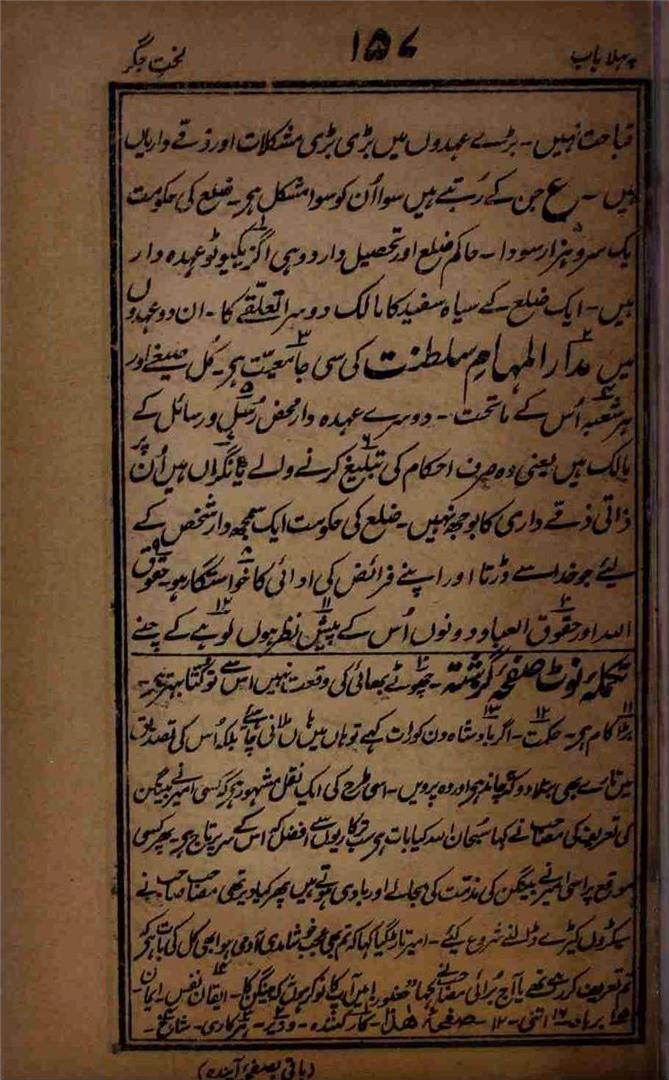 پہلا باب
۱۵۷
لخت جگر
قباحت نہیں۔ بڑے عہدوں میں بڑی بڑی مشکلات اور ذمّے داریاں
ہیں۔ ع جن کے رُتبے ہیں سوا اُن کو سوا مشکل ہے۔ ضلع کی حکومت
یک سر و ہزار سودا۔ حاکم ضلع اور تحصیل دار دو ہی اگزیکیوٹو عہدہ دار
ہیں۔ ایک ضلع کے سیاہ سفید کا مالک دوسرا تعلّقے کا۔ ان دو عہدوں
میں مدار المہام سلطنت کی سی جامعیّت ہے۔ کُل صیغے اور
ہر شعبہ اُس کے ماتحت۔ دوسرے عہدہ دار محض رُسُل و رسائل کے
مالک ہیں یعنی وہ صرف احکام کی تبلیغ کرنے والے یا نگراں ہیں اُن پر
ذاتی ذمّے داری کا بوجھ نہیں۔ ضلع کی حکومت ایک سمجھ دار شخص کے
لیئے جو خدا سے ڈرتا اور اپنے فرائض کی ادائی کا خواستگار ہو۔ حقوق
اللہ اور حقوق العباد دونوں اُس کے پیش نظر ہوں لوہے کے چنے
تکملۂ نوٹ صفحۂ گزشتہ۔ چھوٹے بھائی کی وقعت نہیں اس سے تو کُتّا بہتر ہے۔
۱۱ بڑا کام ہے۔ ۱۲ حکمت۔ ۱۳ اگر بادشاہ دن کو رات کہے تو ہاں میں ہاں ملانی چاہئے بلکہ اُس کی تصدیق
میں تارے بھی بتلا دو کہ وہ چاند ہے اور وہ پرویں۔ اسی طرح کی ایک نقل مشہور ہے کہ کسی امیر نے بینگن
کی تعریف کی مصاحب نے کہا سبحان اللہ کیا بات ہے سب ترکاریوں سے افضل کہ اس کے سر پر تاج ہے۔ پھر کسی
موقع پر اسی امیر نے بینگن کی مذمّت کی بجائے اور بادی ہوتے ہیں پھر کیا دیر تھی مصاحب صاحب نے
سیکڑوں کیڑے ڈالنے شروع کیئے۔ امیر تاڑ گیا کہا کہ تم بھی عجب خوشامدی آدمی ہو ابھی کل کی بات ہے کہ
تم تعریف کر رہے تھے یا آج بُرائی مصاحب نے کہا "حضور! میں آپ کا نوکر ہوں کہ بینگن کا۔ ۱۴ ایقان نفس۔ ایمان۔
۱۵ برباد۔ ۱۶ اتنی۔ ۱۲ صفحۂ ھٰذا۔ کار کنندہ۔ وزیر۔ ہمہ کاری۔ شاخ۔
(باقی بصفحۂ آیندہ)